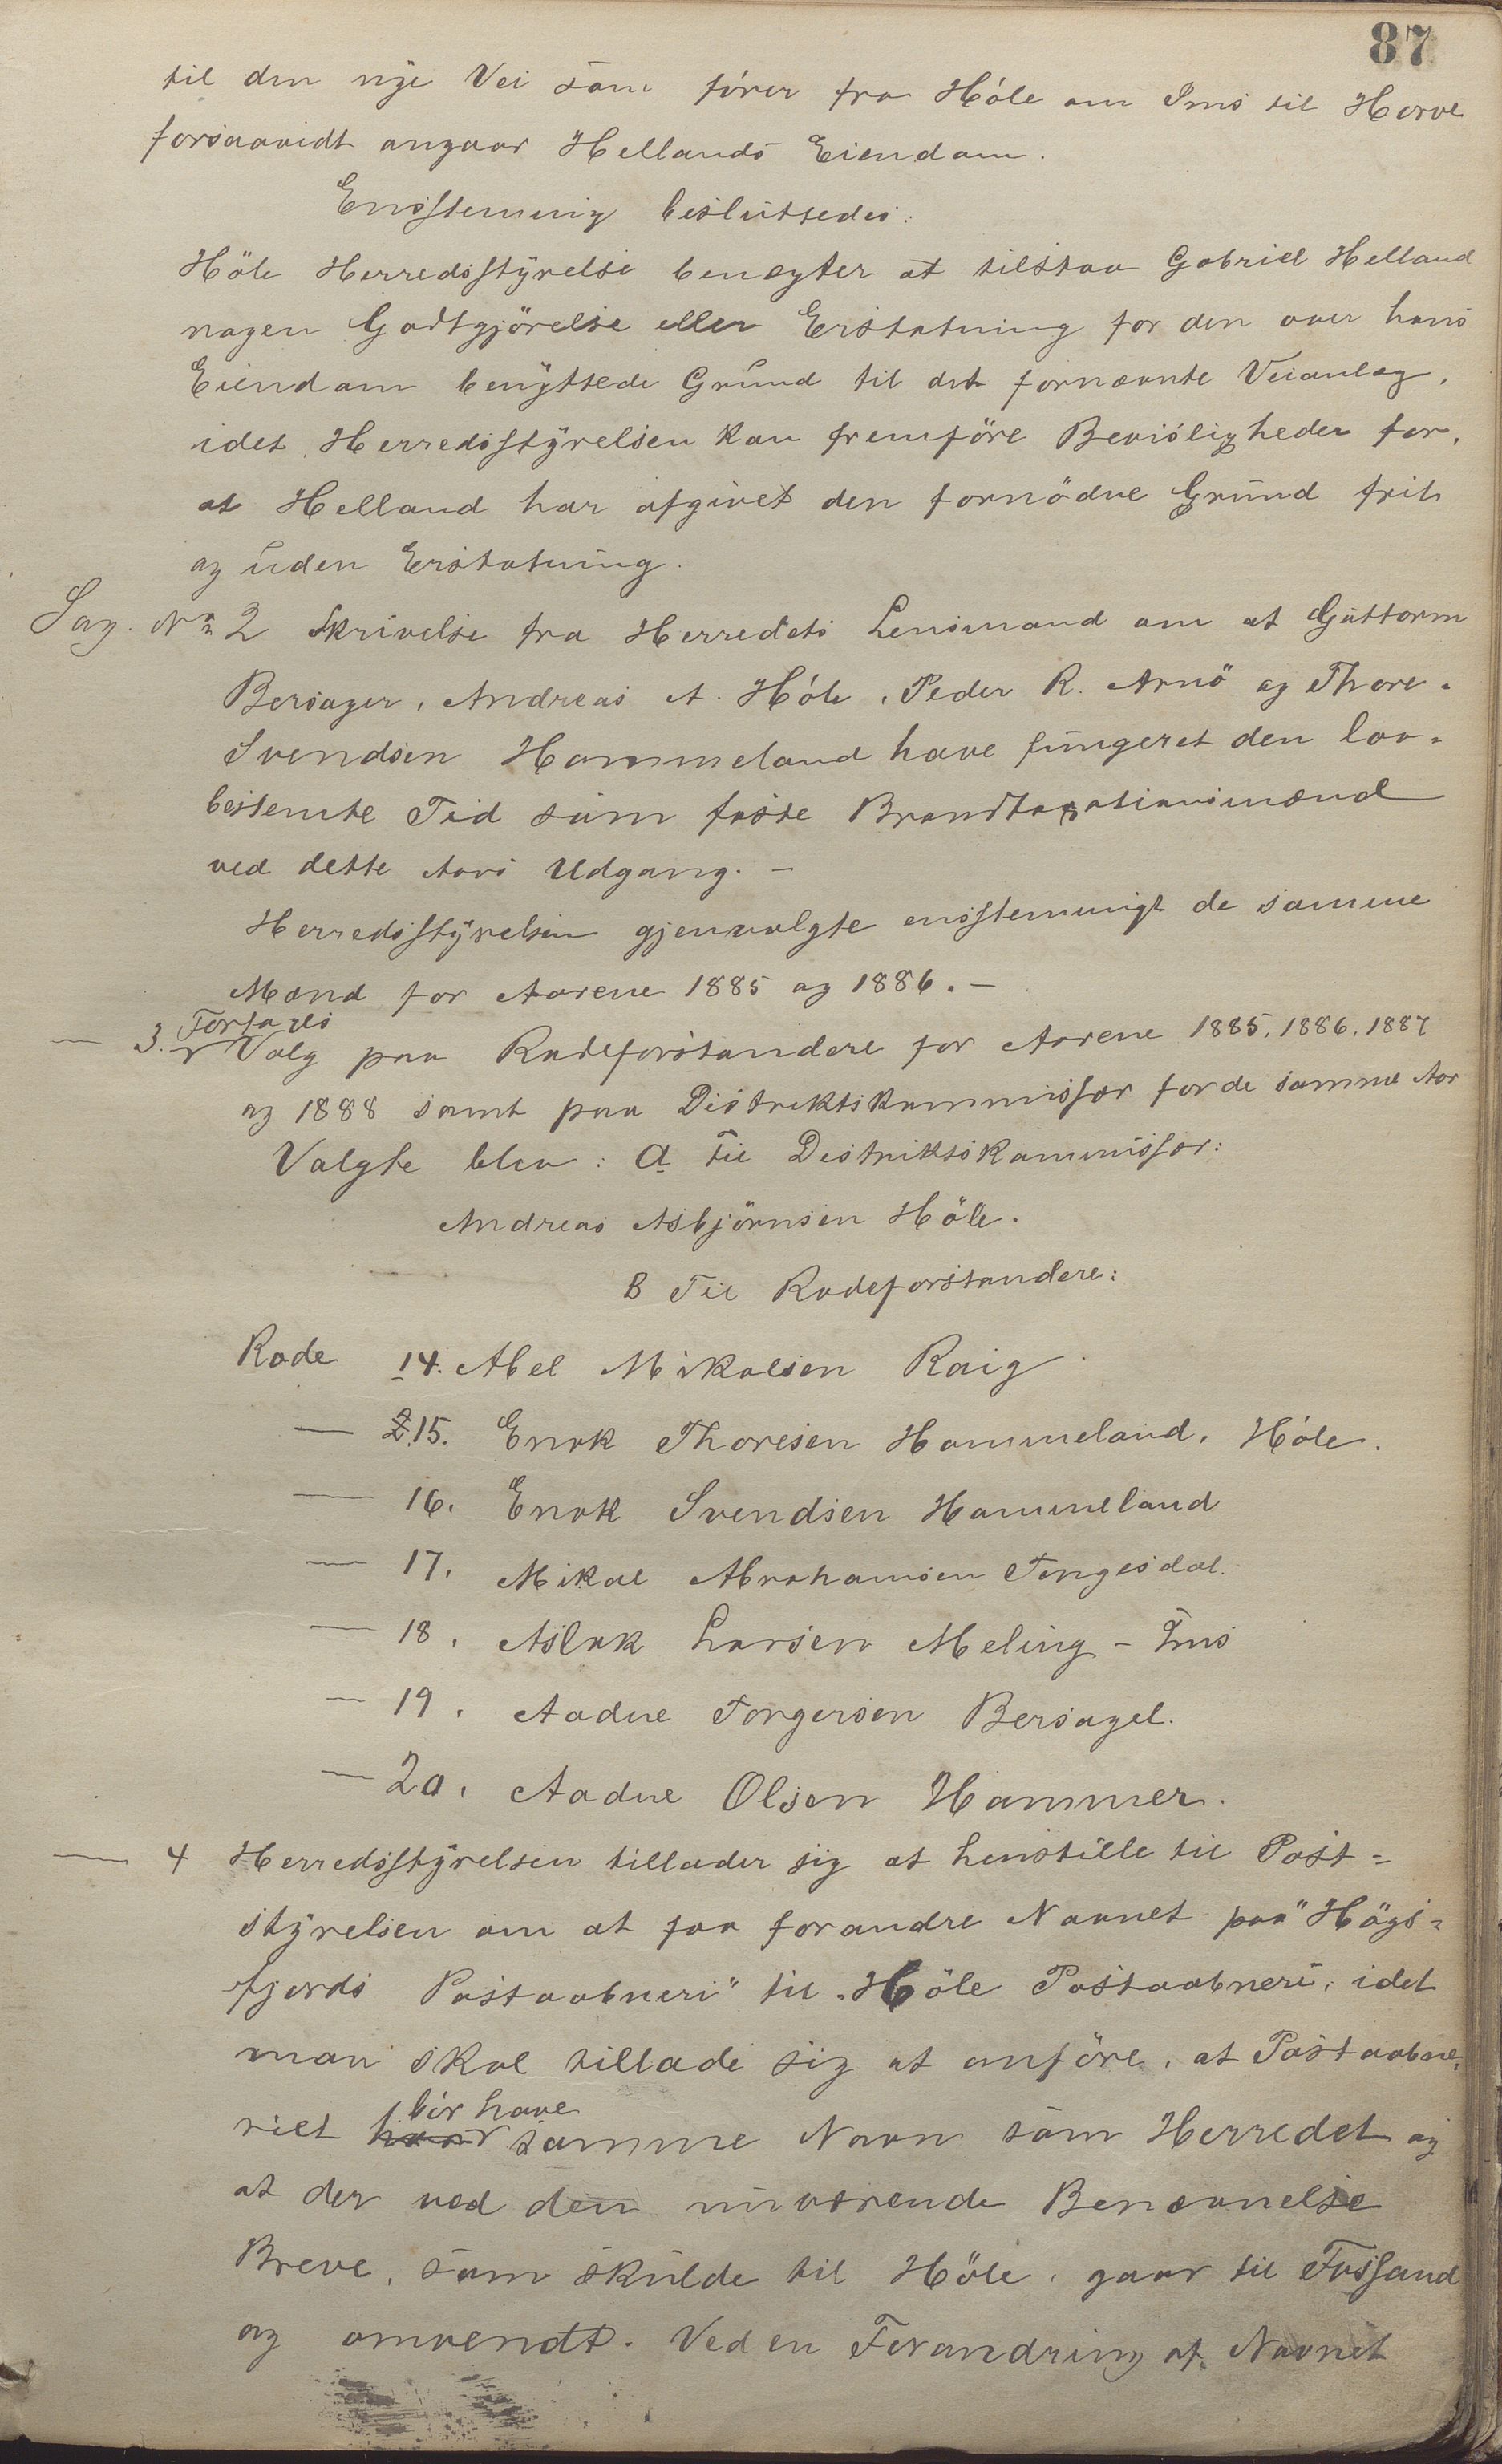 87
til den nye Vei som fører fra Høle om Ims til Horve
forsaavidt angaar Hellands Eiendom.
Enstemmig besluttedes:
Høle Herredsstyrelse benegter at tilstaa Gabriel Helland
nogen Godtgjörelse eller Erstatning for den over hans
Eiendom benyttede Grund til det fornævnte Veianlæg,
idet Herredsstyrelsen kan fremföre Bevisligheder for,
at Helland har afgivet den fornödne Grund frit
og uden Erstatning.
Sag. No 2 Skrivelse fra Herredets Lensmand om at Guttorm
Bersager, Andreas A. Høle, Peder R. Arnö og Thore
Svendsen Hommeland have fungeret den lov-
bestemte Tid som faste Brandtaxationsmænd
ved dette Aars Udgang. —
Herredsstyrelsen gjenvalgte enstemmigt de samme
Mænd for Aarene 1885 og 1886. —
— 3. Foretages Valg paa Rodeforstandere for Aarene 1885, 1886, 1887
og 1888 samt paa Distriktskommissær for de samme Aar
Valgte blev: a Til Distriktskommissær:
Andreas Asbjörnsen Höle.
B Til Rodeforstandere:
Rode 14. Abel Mikalsen Raig
— 2 15. Enok Thoresen Hommeland, Høle.
— 16. Enok Svendsen Hommeland
— 17. Mikal Abrahamsen Tengesdal.
— 18. Aslak Larsen Meling - Ims
— 19. Aadne Torgersen Bersagel.
— 20. Aadne Olsen Hammer.
— 4 Herredsstyrelsen tillader sig at henstille til Post-
styrelsen om at faa forandre Navnet paa "Högs-
fjords Postaabneri" til "Höle Postaabneri, idet
man skal tillade sig at anföre, at Postaabne-
riet bør have samme Navn som Herredet og
at der ved den nuværende Benævnelse
Breve, som skulde til Höle, gaar til Fossand
og omvendt. Ved en Forandring af Navnet